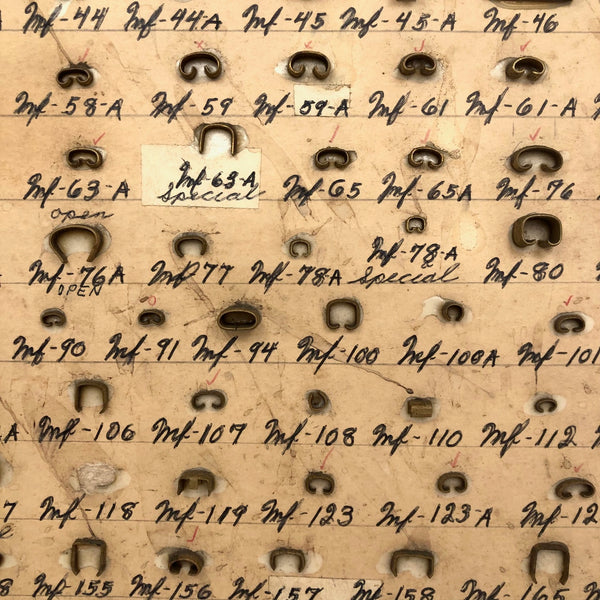 Mf-44 Mf-44A Mf-45 Mf-45-A Mf-46
Mf-58-A Mf-59 Mf-59-A Mf-61 Mf-61-A
Mf-63-A Mf-63-A Mf-65 Mf-65A Mf-76
open Special
Mf-76A Mf-77 Mf-78A Mf-78-A Mf-80
OPEN Special
Mf-90 Mf-91 Mf-94 Mf-100 Mf-100A Mf-101
A Mf-106 Mf-107 Mf-108 Mf-110 Mf-112
7 Mf-118 Mf-119 Mf-123 Mf-123-A Mf-12
8 Mf-155 Mf-156 Mf-157 Mf-158 Mf-165